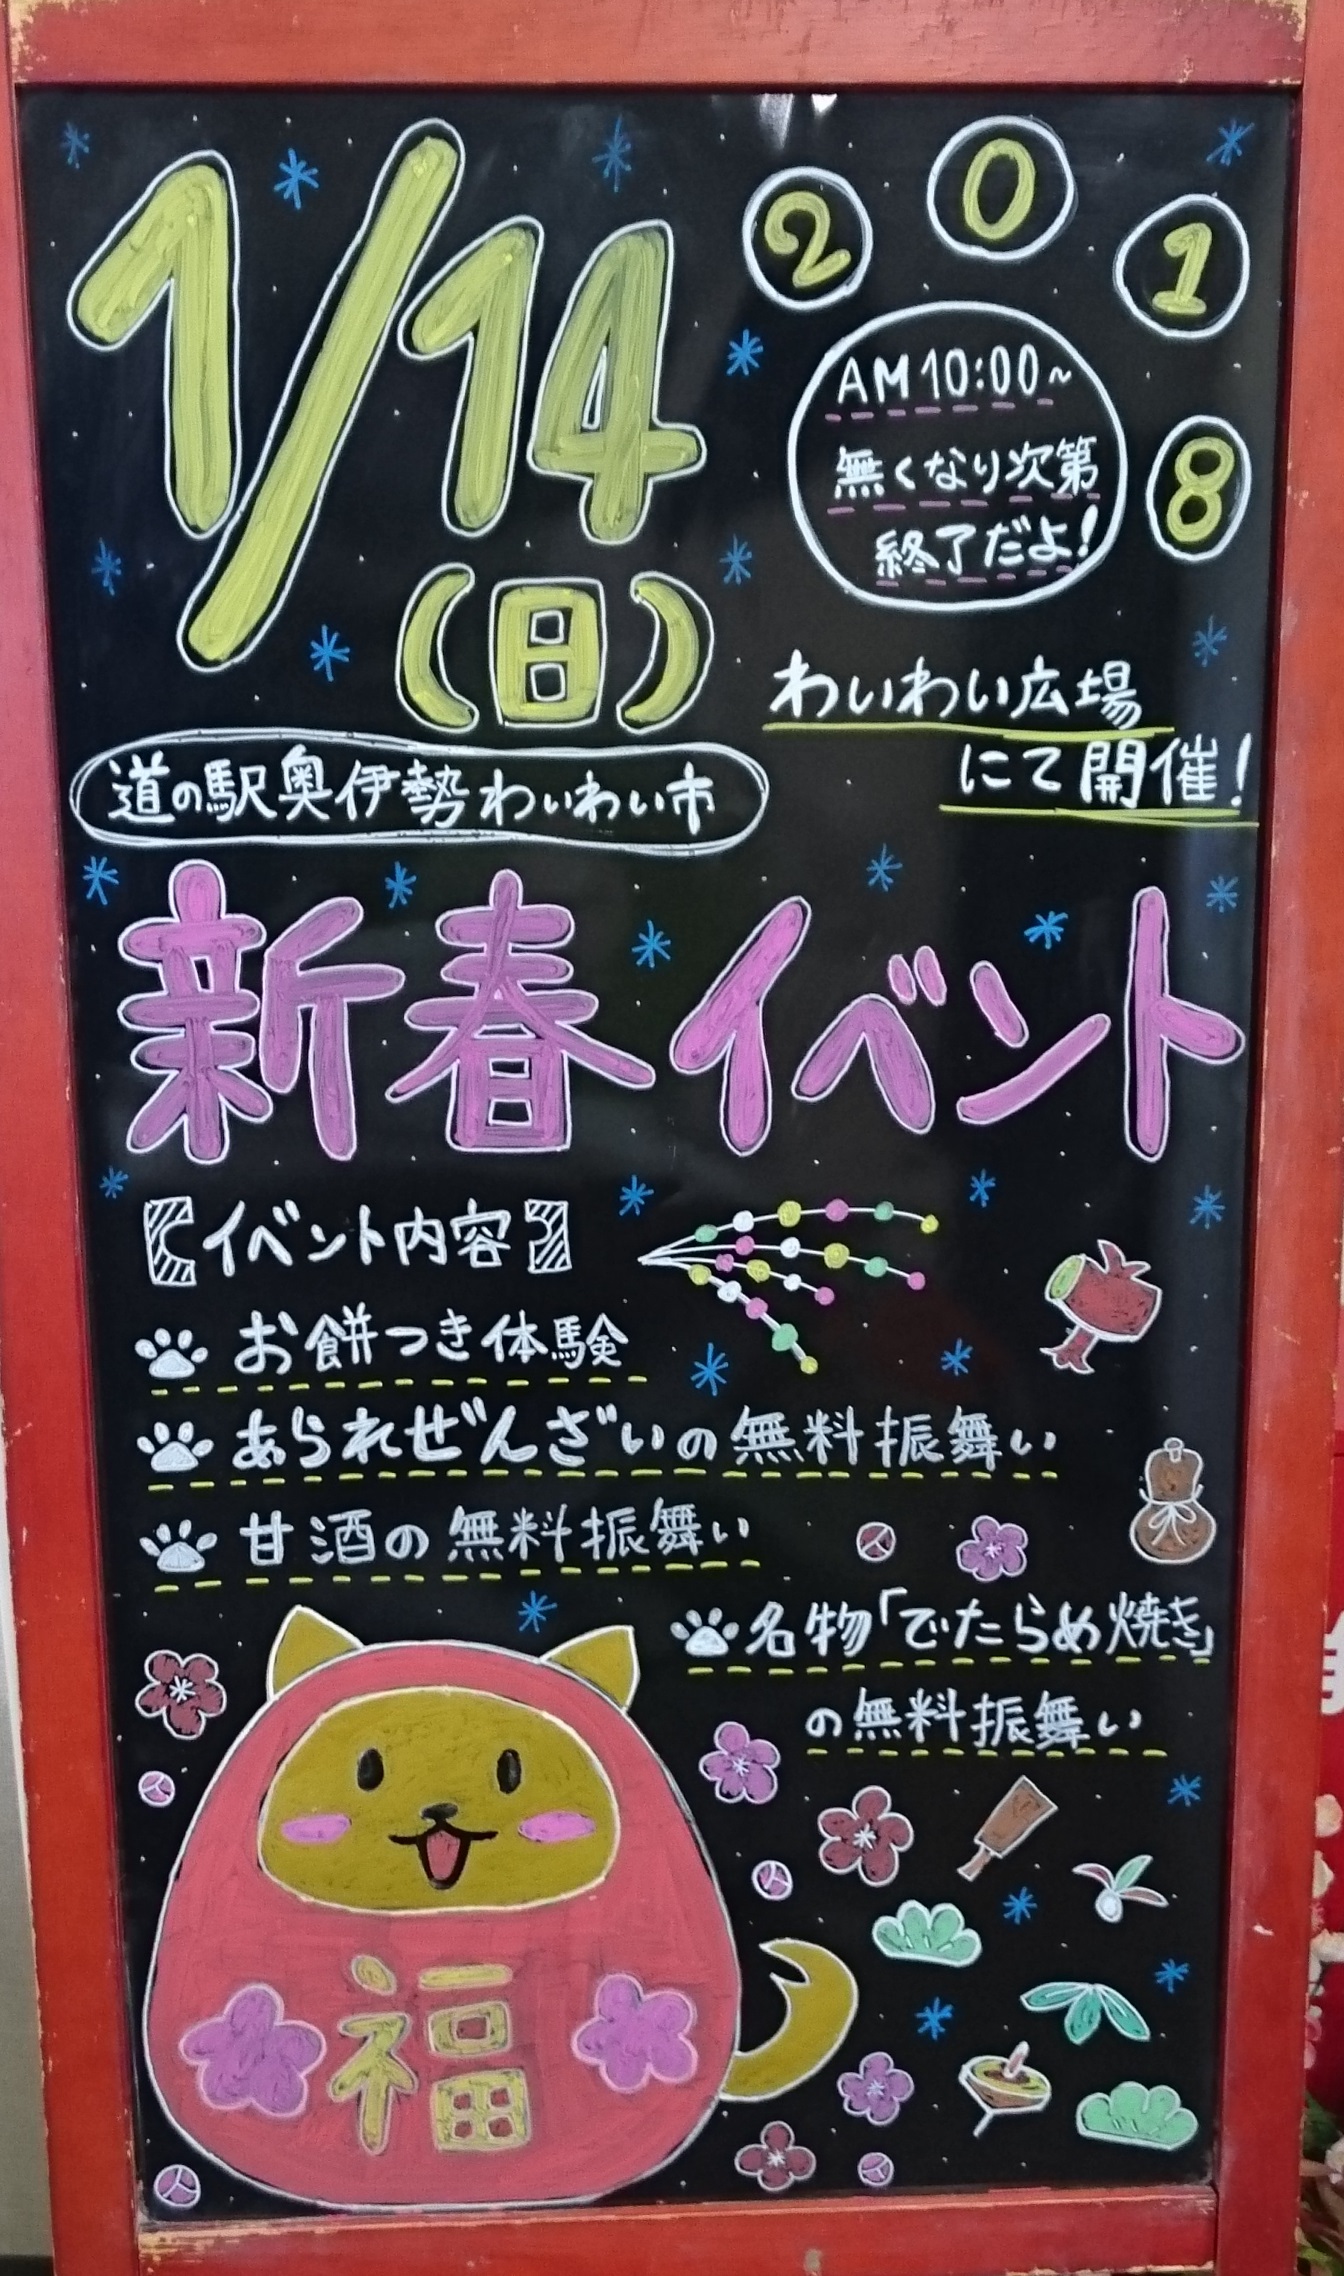 1/14
(日)
2018
AM10:00~
無くなり次第
終了だよ!
わいわい広場
にて開催!
道の駅奥伊勢わいわい市
新春イベント
【イベント内容】
お餅つき体験
あられぜんざいの無料振舞い
甘酒の無料振舞い
名物「でたらめ焼き」
の無料振舞い
福